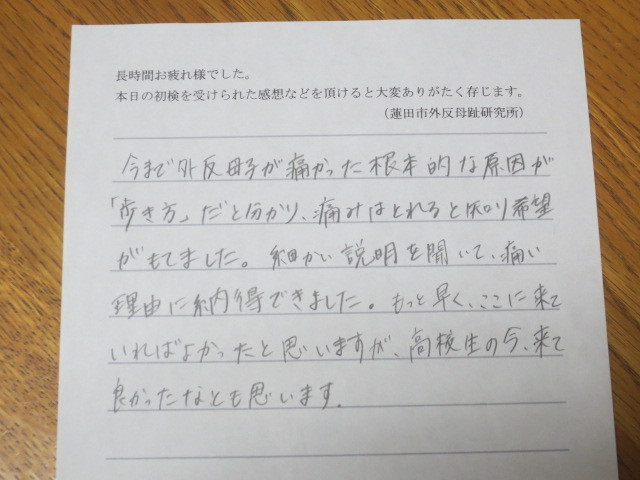 長時間お疲れ様でした。
本日の初検を受けられた感想などを頂けると大変ありがたく存じます。
（蓮田市外反母趾研究所）
今まで外反母子が痛かった根本的な原因が
「歩き方」だと分かり、痛みはとれると知り希望
がもてました。細かい説明を聞いて、痛い
理由に納得できました。もっと早く、ここに来て
いればよかったと思いますが、高校生の今、来て
良かったなとも思います。